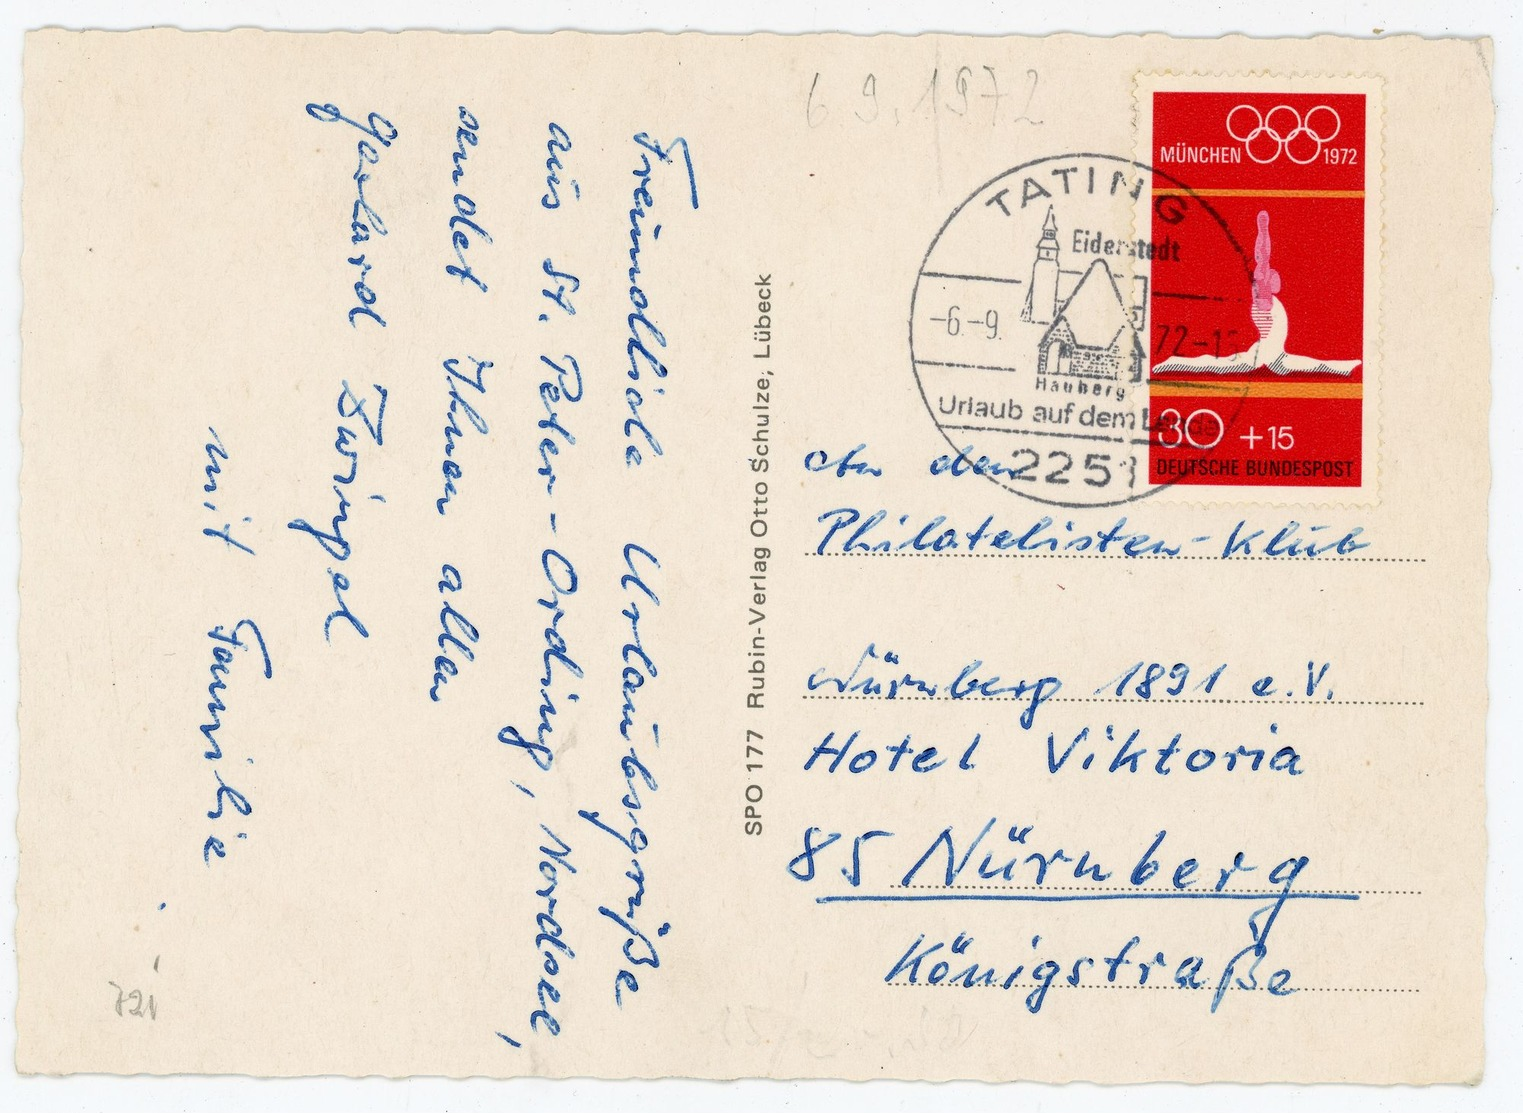 Freundliche Urlaubsgrüße
aus St. Peter-Ording, Nordsee,
sendet Ihnen allen
Gerhard Zwingel
mit Familie
721
SPO 177 Rubin-Verlag Otto Schulze, Lübeck
6 9. 1972
MÜNCHEN 1972
30 + 15
DEUTSCHE BUNDESPOST
TATING
Eiderstedt
-6.-9. 72-15
Hauberg
Urlaub auf dem Lande
2251
An den
Philatelisten-Klub
Nürnberg 1891 e.V.
Hotel Viktoria
85 Nürnberg
Königstraße